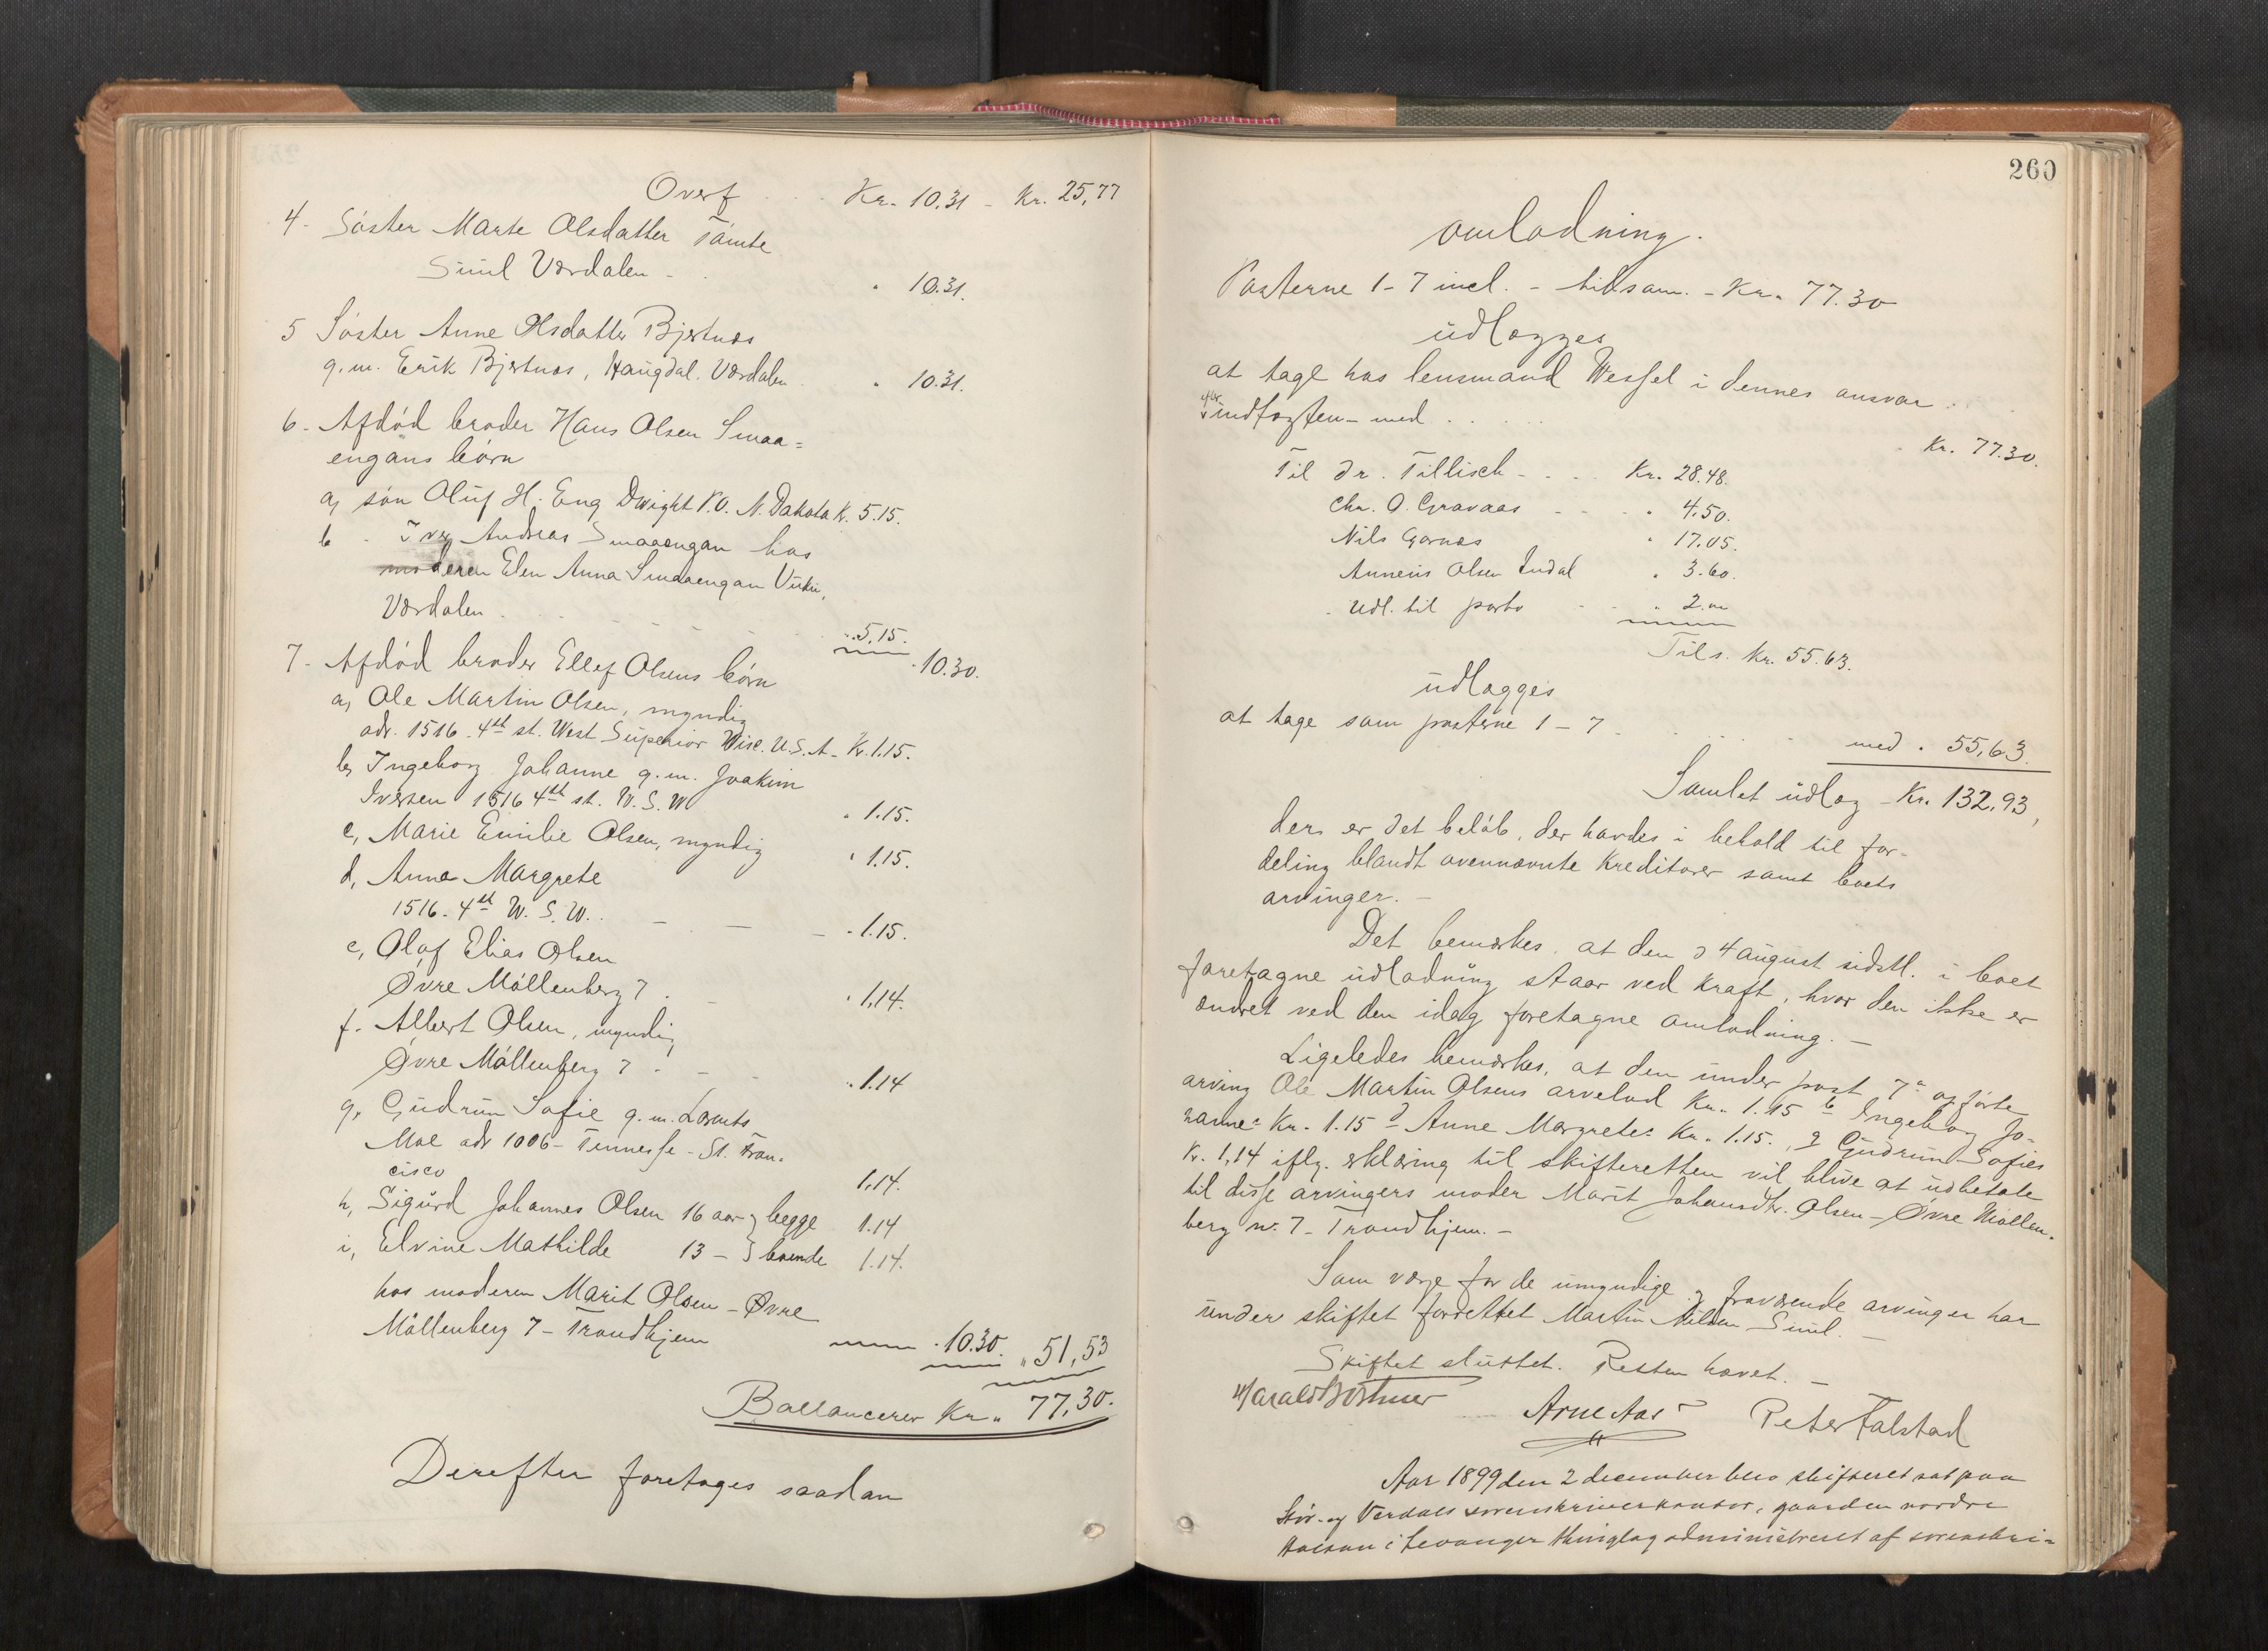 Overf Kr. 10.31 - Kr. 25,77
4. Söster Marte Olsdatter Tömte
Suul Værdalen " 10.31.
5 Söster Anne Olsdatter Bjertnæs
g.m. Erik Bjertnæs, Haugdal. Værdalen " 10.31.
6. Afdöd broder Hans Olsen Smaa=
engans börn
a, sön Oluf H. Eng Dwight P.O. N. Dakota K. 5.15.
b - Iver Andreas Smaaengan hos
moderen Elen Anna Smaaengan Vuku,
Værdalen " 5.15. " 10.30.
7. Afdöd broder Ellef Olsens börn
a, Ole Martin Olsen, myndig
adr. 1516. 4th st. West Superior Wisc. U.S.A - Kr. 1.15.
b, Ingeborg Johanne g.m. Joakim
Iversen 1516 4th st. W. S. W " 1.15.
c, Marie Emilie Olsen, myndig " 1.15.
d, Anna Margrete
1516. 4th W. S. W. - 1.15.
e, Olaf Elias Olsen
Øvre Möllenberg 7. " 1,14.
f. Albert Olsen, myndig
Øvre Möllenberg 7 - " 1.14
g, Gudrun Sofie g.m. Laurits
Moe adr 1006 - Tennesse - St. Fran-
cisco 1,14.
h, Sigurd Johannes Olsen 16 aar } begge 1.14
i, Elvine Mathilde 13 - } boende 1.14.
hos moderen Marit Olsen - Øvre
Möllenberg 7 - Trondhjem " 10.30. " 51,53
Ballancerer Kr. 77,30.
Derefter foretages saadan
260
omlodning.
Posterne 1-7 incl. - tilsam. - Kr. 77.30
udlægges
at tage hos lensmand Wessel i dennes ansvar
for indtægten - med Kr. 77.30.
Til Dr. Tillisch - Kr. 28.48.
Chr. O. Gravaas - " 4.50.
Nils Garnæs " 17.05.
Anneus Olsen Indal " 3.60.
Udl. til porto " 2.00
Tils. Kr. 55.63.
udlægges
at tage som posterne 1-7 med " 55,63.
Samlet udlæg - Kr. 132,93,
der er det belöb, der havdes i behold til for-
deling blandt ovennævnte kreditorer samt boets
arvinger. -
Det bemærkes, at den 24 august sidstl. i boet
foretagne udlodning staar ved kraft, hvor den ikke er
ændret ved den idag foretagne omlodning. -
Ligeledes bemærkes, at den under post 7a opförte
arving Ole Martin Olsens arvelod Kr. 1.15 b Ingeborg Jo-
hannes Kr. 1.15 d Anne Margretes Kr. 1.15., g Gudrun Sofies
Kr. 1,14 iflg. erklæring til skifteretten vil blive at udbetale
til disse arvingers moder Marit Johansdtr. Olsen - Øvre Möllen-
berg nr. 7 - Trondhjem. -
Som verge for de umyndige og fraværende arvinger har
under skiftet forrettet Martin Nilsen Suul. -
Skiftet sluttet. Retten hævet. -
Harald Bothner Arne Aas Peter Falstad
Aar 1899 den 2 december blev skifteret sat paa
Stör- og Verdals sorenskriverkontor, gaarden nordre
i Levanger thinglag administreret af sorenskri=